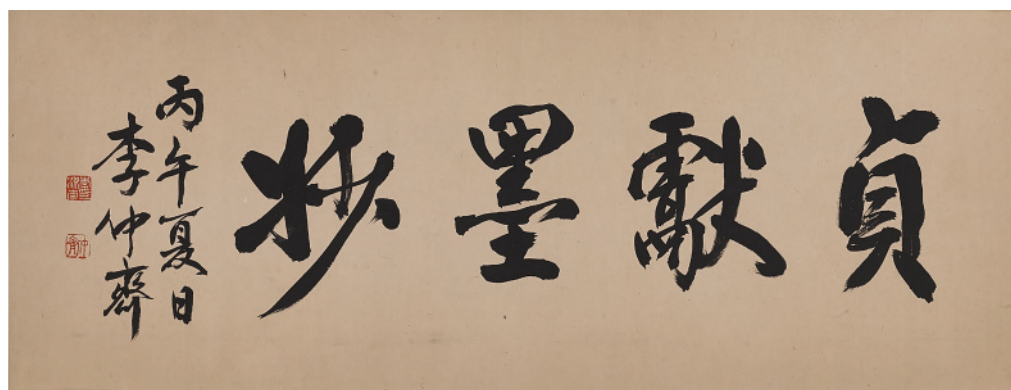 貞獻墨妙
丙午夏日
李仲齋